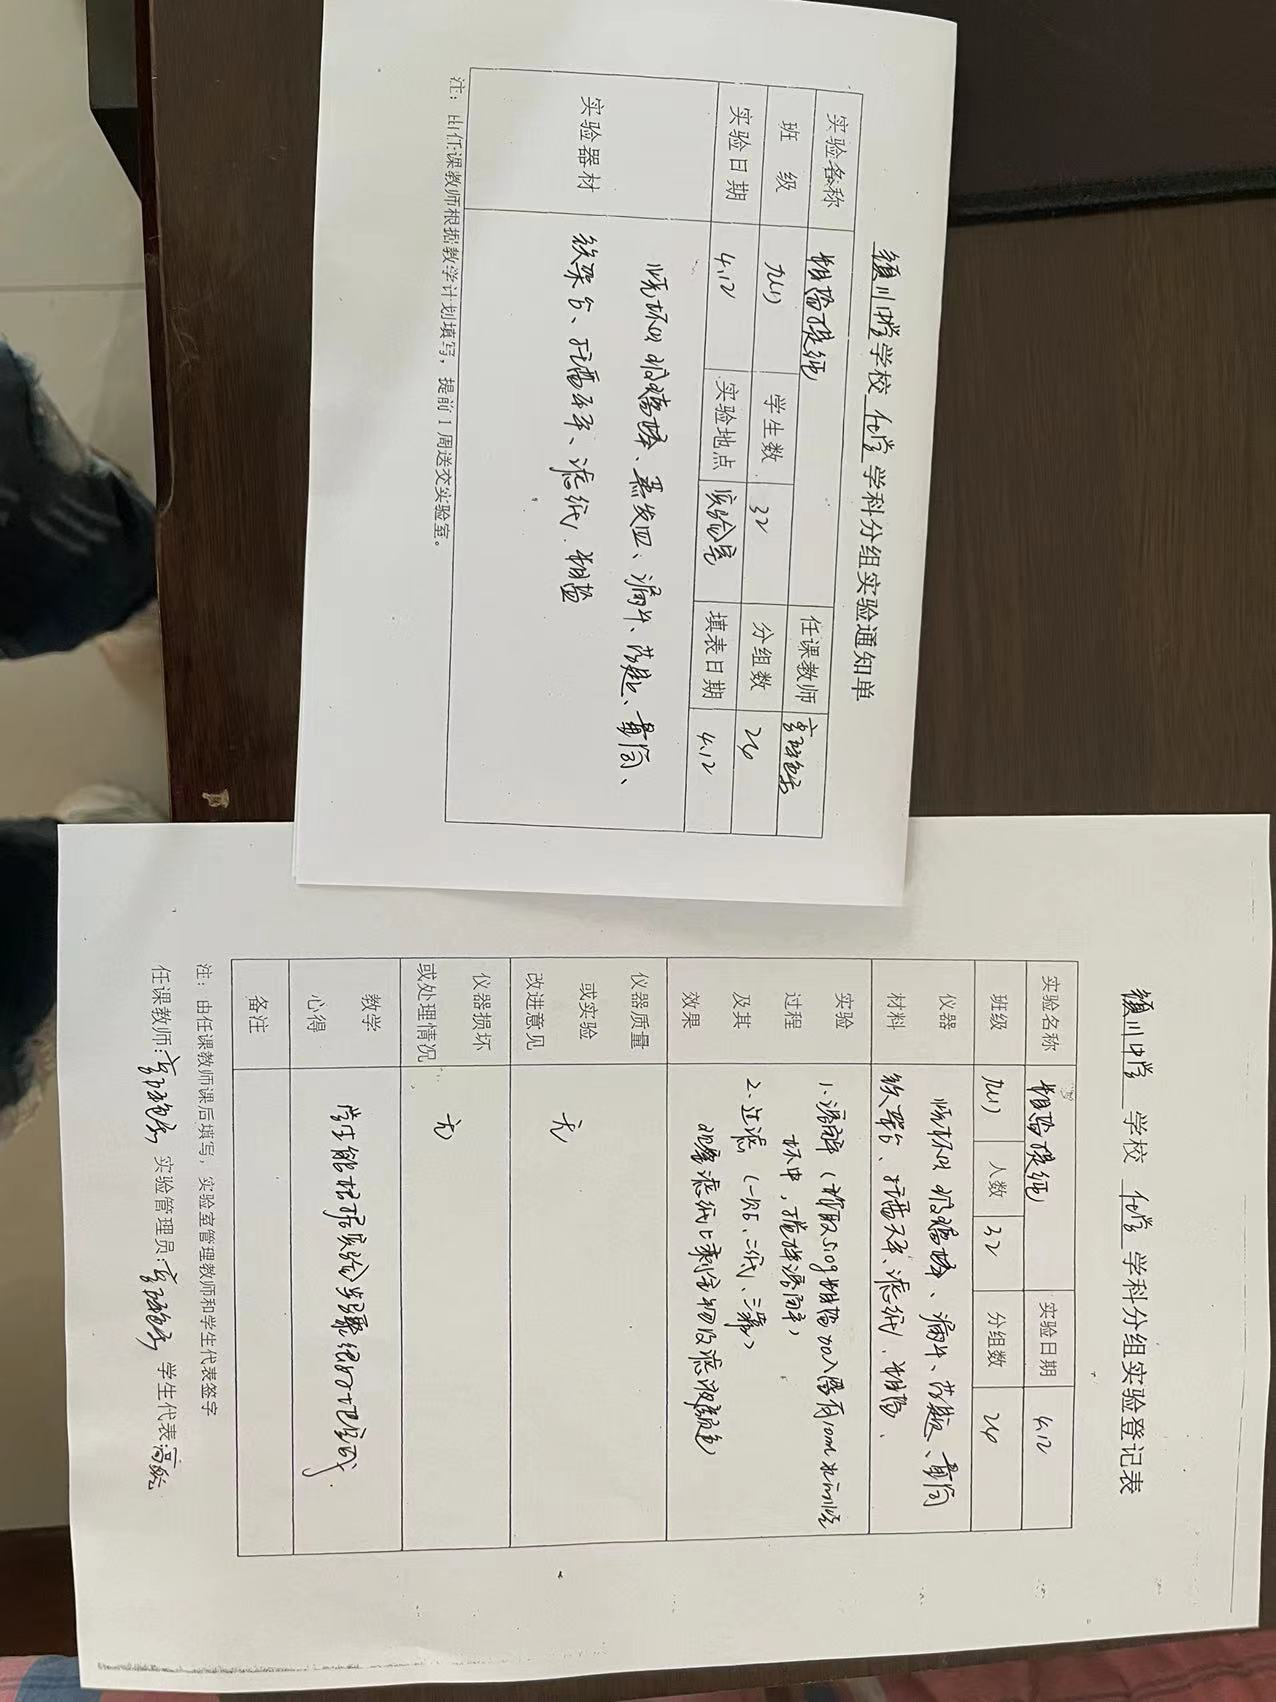 颍川中学学校 化学 学科分组实验通知单
实验名称 粗盐提纯 任课教师
班 级 九(1) 学生数 32 分组数 24
实验日期 4.12 实验地点 实验室 填表日期 4.12
实验器材
烧杯、玻璃棒、蒸发皿、漏斗、药匙、量筒、
铁架台、托盘天平、滤纸、粗盐
注：由任课教师根据教学计划填写，提前1周送交实验室。
颍川中学 学校 化学 学科分组实验登记表
实验名称 粗盐提纯 实验日期 4.12
班级 九(1) 人数 32 分组数 24
仪器材料
烧杯、玻璃棒、漏斗、药匙、量筒
铁架台、托盘天平、滤纸、粗盐.
实验过程及其效果
1.溶解(称取5.0g粗盐加入盛有10ml水的烧
杯中，搅拌溶解)
2.过滤 (一贴、二低、三靠)
观察滤纸上剩余物及滤液颜色
仪器质量或实验改进意见
无
仪器损坏或处理情况
无
教学心得
学生能根据实验步骤很好地完成
备注
注：由任课教师课后填写，实验室管理教师和学生代表签字
任课教师: 实验管理员: 学生代表: